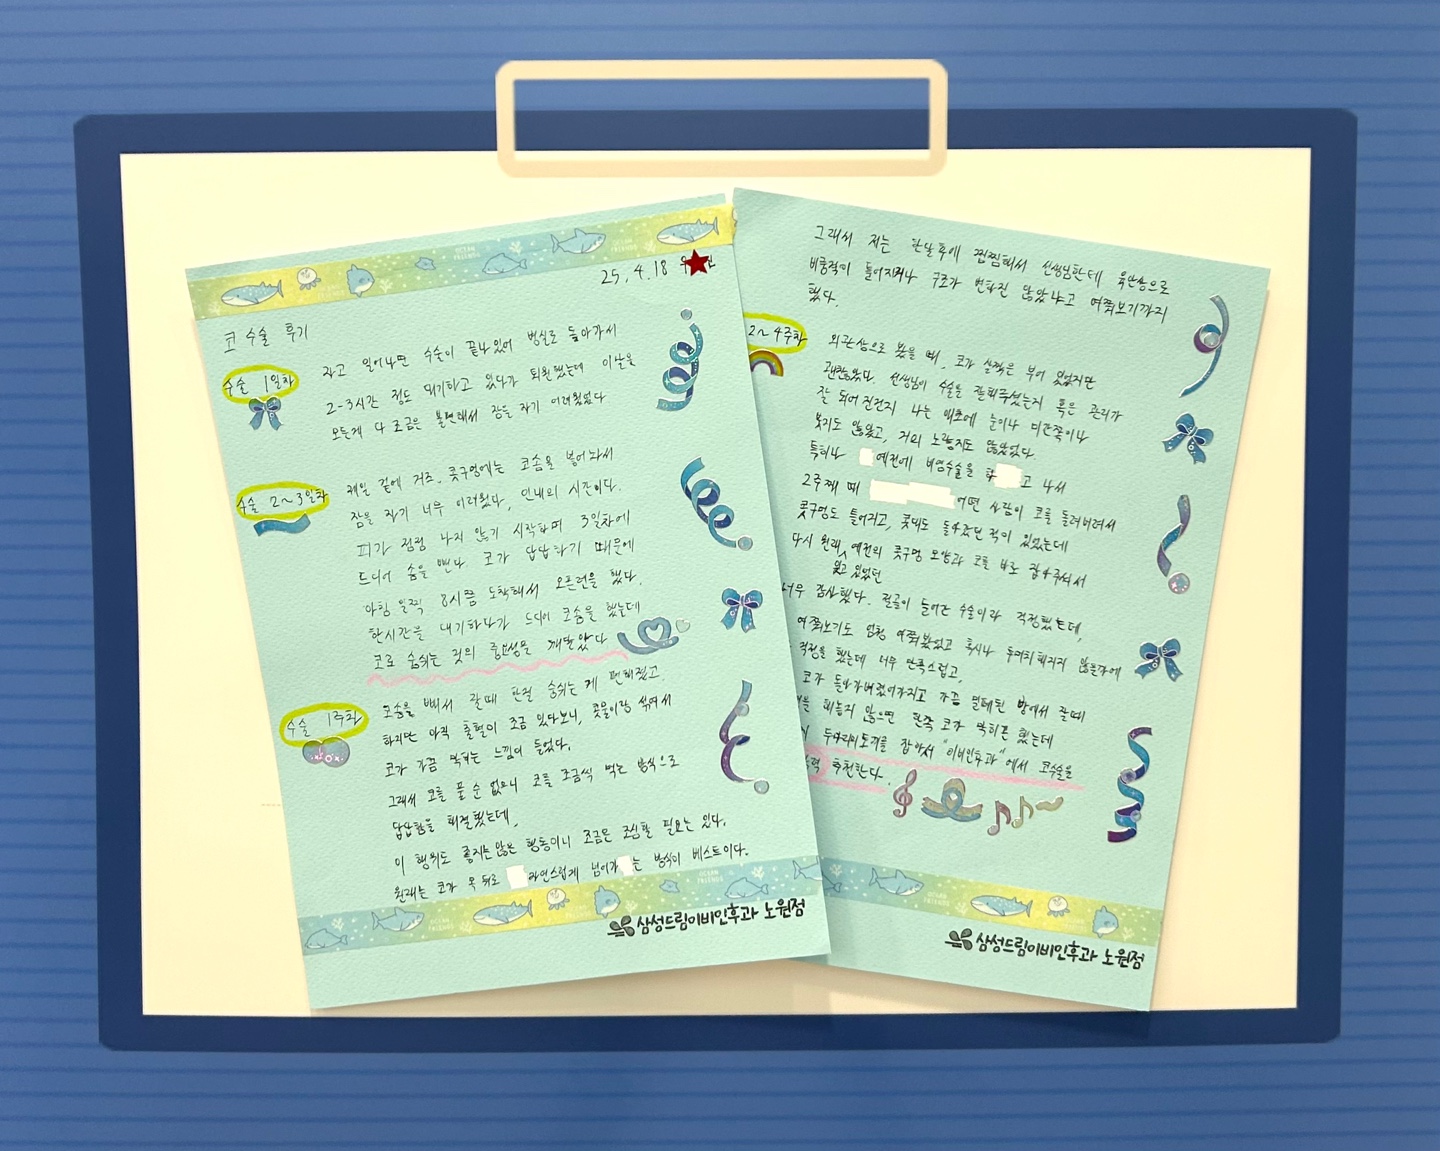 25. 4. 18
코 수술 후기
수술 1일차
자고 일어나면 수술이 끝나있어 병실로 돌아가서
2-3시간 정도 대기하고 있다가 퇴원했는데 이날은
모든게 다 조금은 불편해서 잠을 자기 어려웠었다
수술 2~3일차
제일 겉에 거즈, 콧구멍에는 코솜을 넣어놔서
잠을 자기 너무 어려웠다, 인내의 시간이다.
피가 점점 나지 않기 시작하며 3일차에
드디어 솜을 뺀다 코가 답답하기 때문에
아침 일찍 8시쯤 도착해서 오픈런을 했다.
한시간을 대기하다가 드디어 코솜을 뺐는데
코로 숨쉬는 것의 중요성을 깨달았다
수술 1주차
코솜을 빼서 잘때 한결 숨쉬는게 편해졌고
하지만 아직 출혈이 조금 있다보니, 콧물이랑 섞여서
코가 가끔 막히는 느낌이 들었다.
그래서 코를 풀 순 없으니 코를 조금씩 먹는 방식으로
답답함을 해결했는데,
이 행위도 좋지는 않은 행동이니 조금은 조심할 필요는 있다.
원래는 코가 목 뒤로 자연스럽게 넘어가는 방식이 베스트이다.
삼성드림이비인후과 노원점
그래서 저는 한달후에 찝찝해서 선생님한테 육안상으로
비중격이 틀어지거나 구조가 변하진 않았냐고 여쭤보기까지
했다.
2~4주차
외관상으로 봤을 때, 코가 살짝은 부어 있었지만
괜찮았다. 선생님이 수술을 잘해주셨는지 혹은 관리가
잘 되어진건지 나는 애초에 눈이나 미간쪽이나
붓기도 않았고, 거의 노랗지도 않았었다.
특히나 예전에 비염수술을 하고 나서
2주째 때 어떤 사람이 코를 돌려버려서
콧구멍도 틀어지고, 콧대도 돌아갔던 적이 있었는데
다시 원래 잊고 있었던 예전의 콧구멍 모양과 코를 바로 잡아주셔서
너무 감사했다. 전골이 들어간 수술이라 걱정했는데,
여쭤보기도 엄청 여쭤봤었고 혹시나 두여치해지지 않을까에
걱정을 했는데 너무 만족스럽고,
코가 돌아가버렸어가지고 가끔 밀폐된 방에서 잘때
틀어놓지 않으면 한쪽 코가 막히곤 했는데
두마리의 토끼를 잡아서 "이비인후과"에서 코수술을
추천한다.
삼성드림이비인후과 노원점